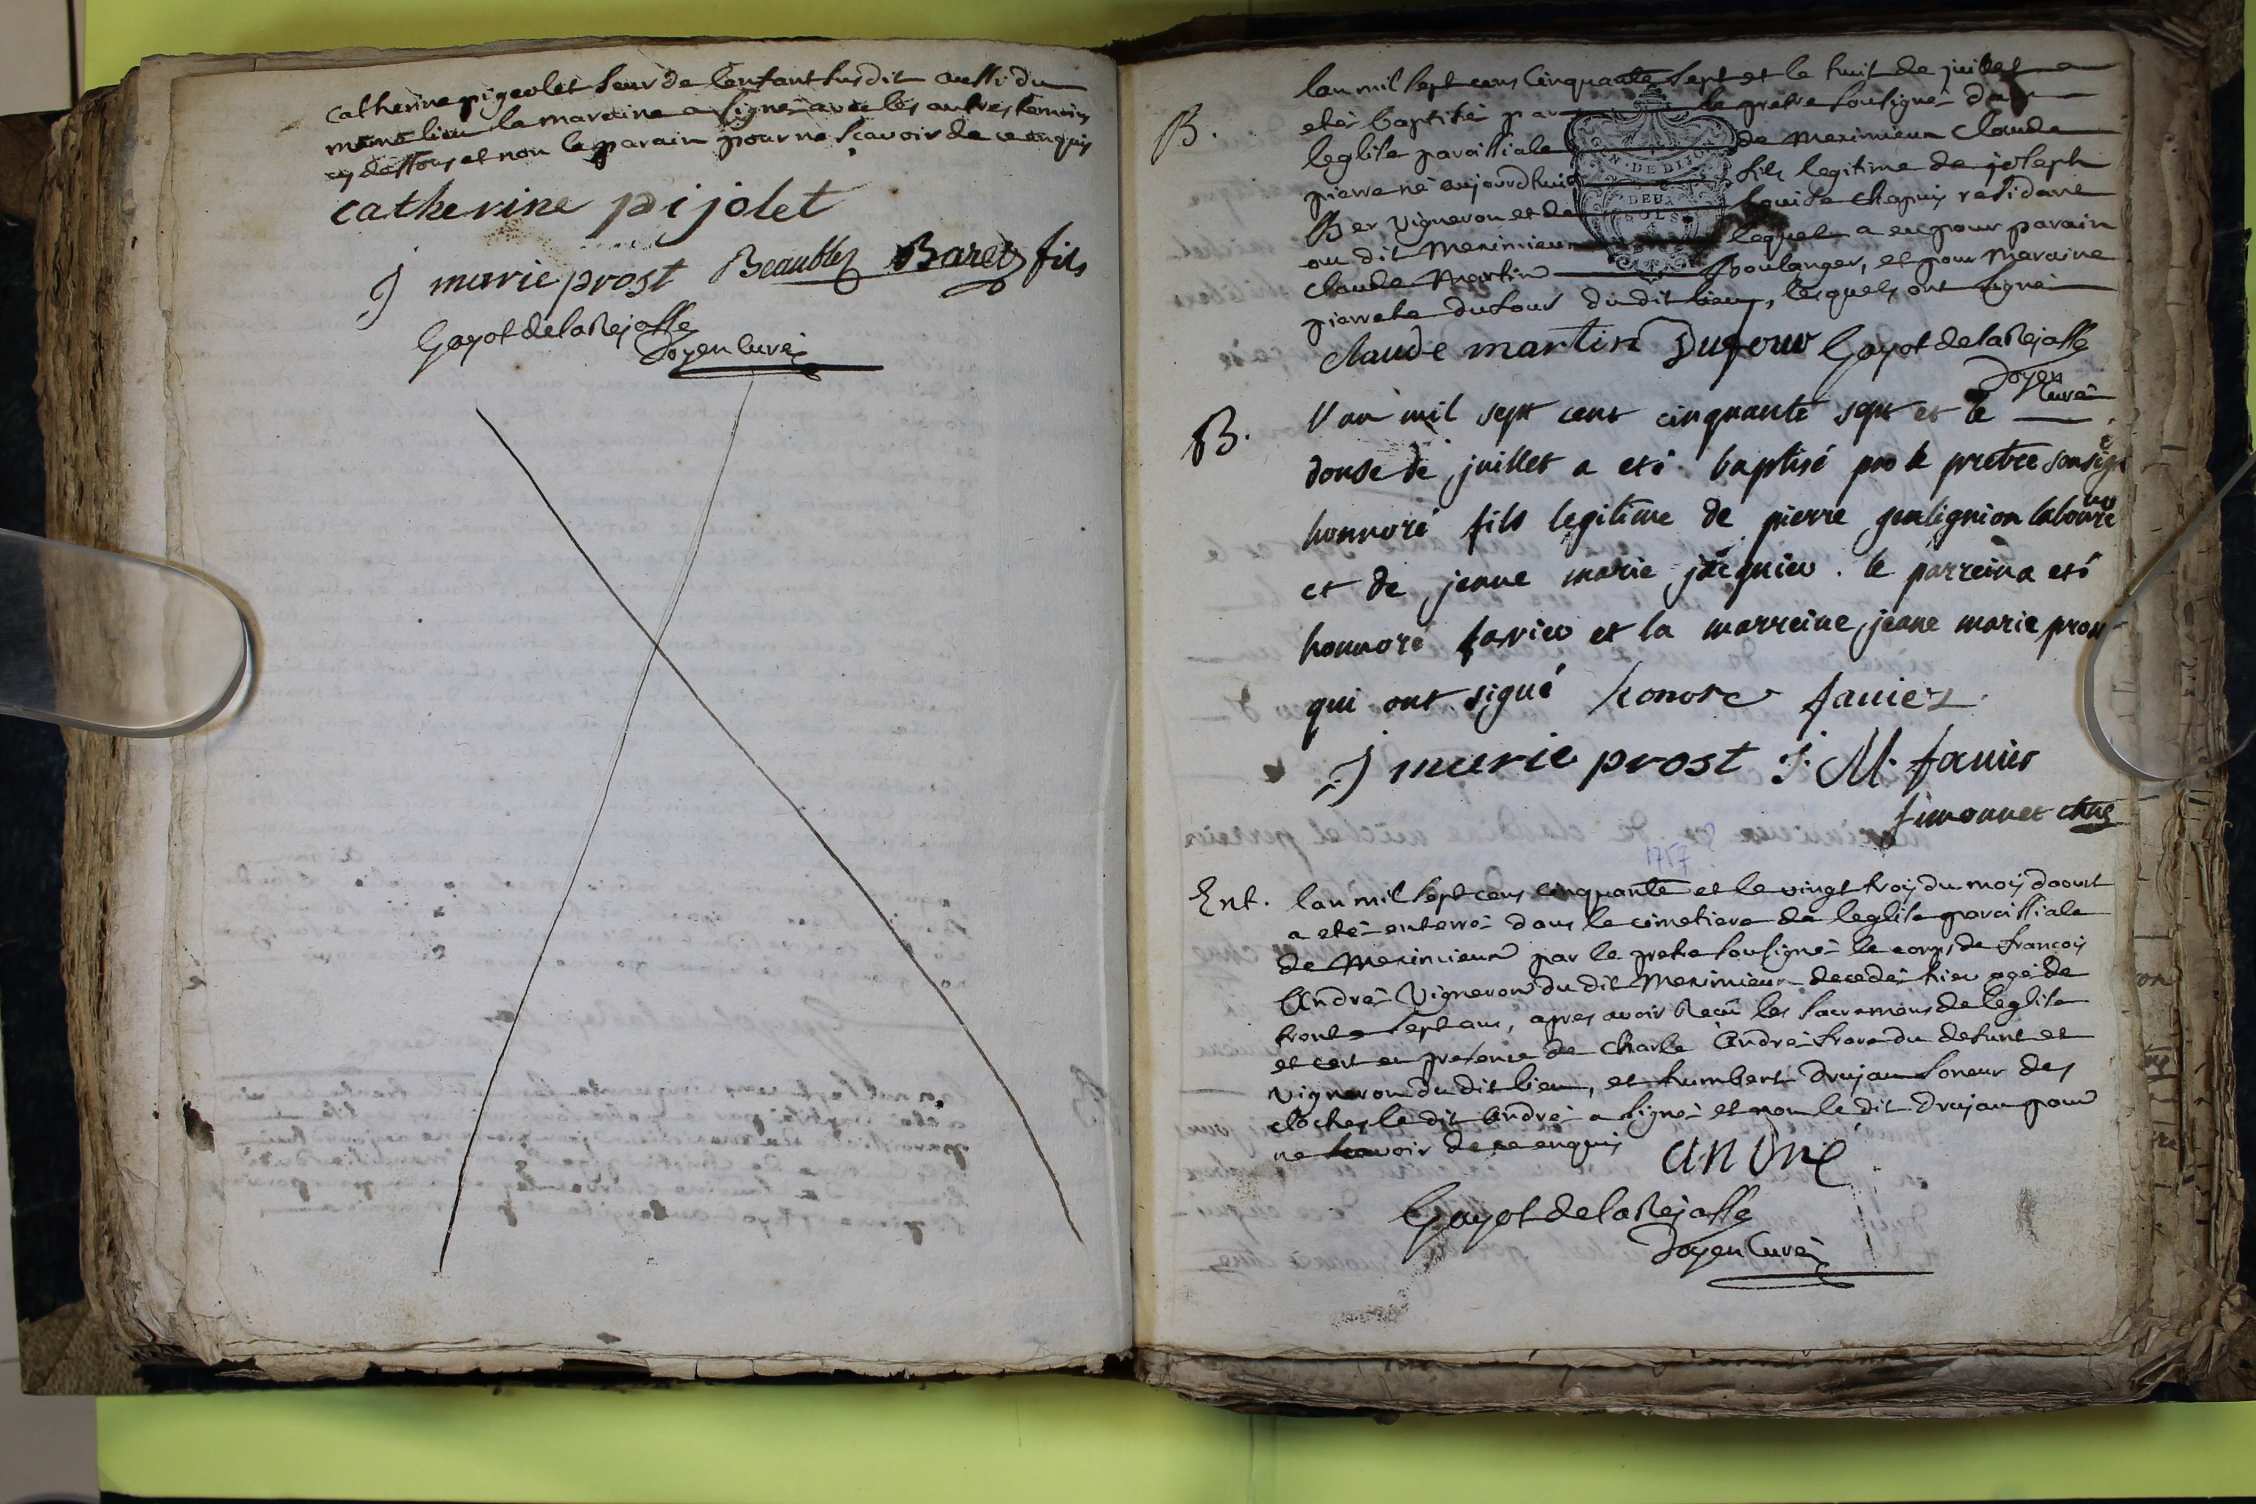 catherine pigeolet seur de l'enfant susdit aussi du
meme lieu la maraine a signé avec les autres temoins
cy dessous et non le parain pour ne scavoir de ce enquis
catherine pijolet
J marie prost Beaublez Baret fils
Gayot de la Rejasse
Doyen Curé
B.
lan mil sept cens cinquante sept et le huit de juillet a
eté baptisé par le pretre sousigné dans
leglise paroissiale de Meximieux Claude
pierre né aujourdhui fils legitime de joseph
vigneron et de Louise Chapuis residant
au dit Meximieux lequel a eu pour parain
claude Martin Boulanger, et pour Maraine
pierrete dufour du dit lieu, lesquels ont signé
claude martin Dufour Gayot de la Rejasse
Doyen
Curé
B.
l'an mil sept cent cinquante sept et le
douse de juillet a eté baptisé par le pretre sousigné
honnoré fils legitime de pierre laboure
et de jeane marie jacquieu . le parrein a eté
honnoré favier et la marreine jeane marie
qui ont signé honore favier
J marie prost J. M. favier
Simonnet
1757 ?
Ent.
lan mil sept cens cinquante et le vingt trois du mois daoust
a eté enterré dans le cimetiere de leglise paroissiale
de Meximieux par le pretre sousigné le corps de francois
André vigneron du dit Meximieux decedé hier agé de
trente sept ans, apres avoir Recu les sacremens de leglise
et cert en presence de Charle André frere du defunt et
vigneron du dit lieu, et humbert drujan soneur des
cloches le dit André a signé et non le dit drujan pour
ne scavoir de ce enquis
Andrié
Gayot de la Rejasse
Doyen Curé